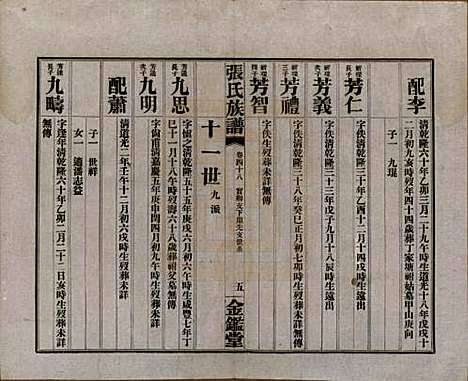 配李
清乾隆六十年乙卯三月二十九午時生道光十八年戊戌十
二月初九寅時歿年四十四歲葬丁家塘祔姑墓甲山庚向
子一 九琨
祈環長子 芳仁
字佚清乾隆三十年乙酉十二月十四戌時生遠出
祈環次子 芳義
字佚清乾隆三十三年戊子九月十八辰時生遠出
祈環三子 芳禮
字佚清乾隆三十八年癸巳正月初七卯時生歿葬未詳無傳
祈環四子 芳智
字佚生歿葬未詳無傳
張氏族譜
卷四十八
五
金鑑堂
十一世 九派
芳遠長子 九思
字慎之清乾隆五十五年庚戌六月初六午時生咸豐七年丁
巳十一月十八午時歿壽六十八歲葬祔父墓無傳
芳遠次子 九明
字尚甫清嘉慶五年庚申閏四月初九午時生歿葬未詳
配蕭
清道光二年壬午十二月初六戌時生歿葬未詳
子一 世祥
女一 適潘志益
芳遠長子 九疇
字逢年清乾隆六十年乙卯二月二十二日亥時生歿葬未詳
無傳